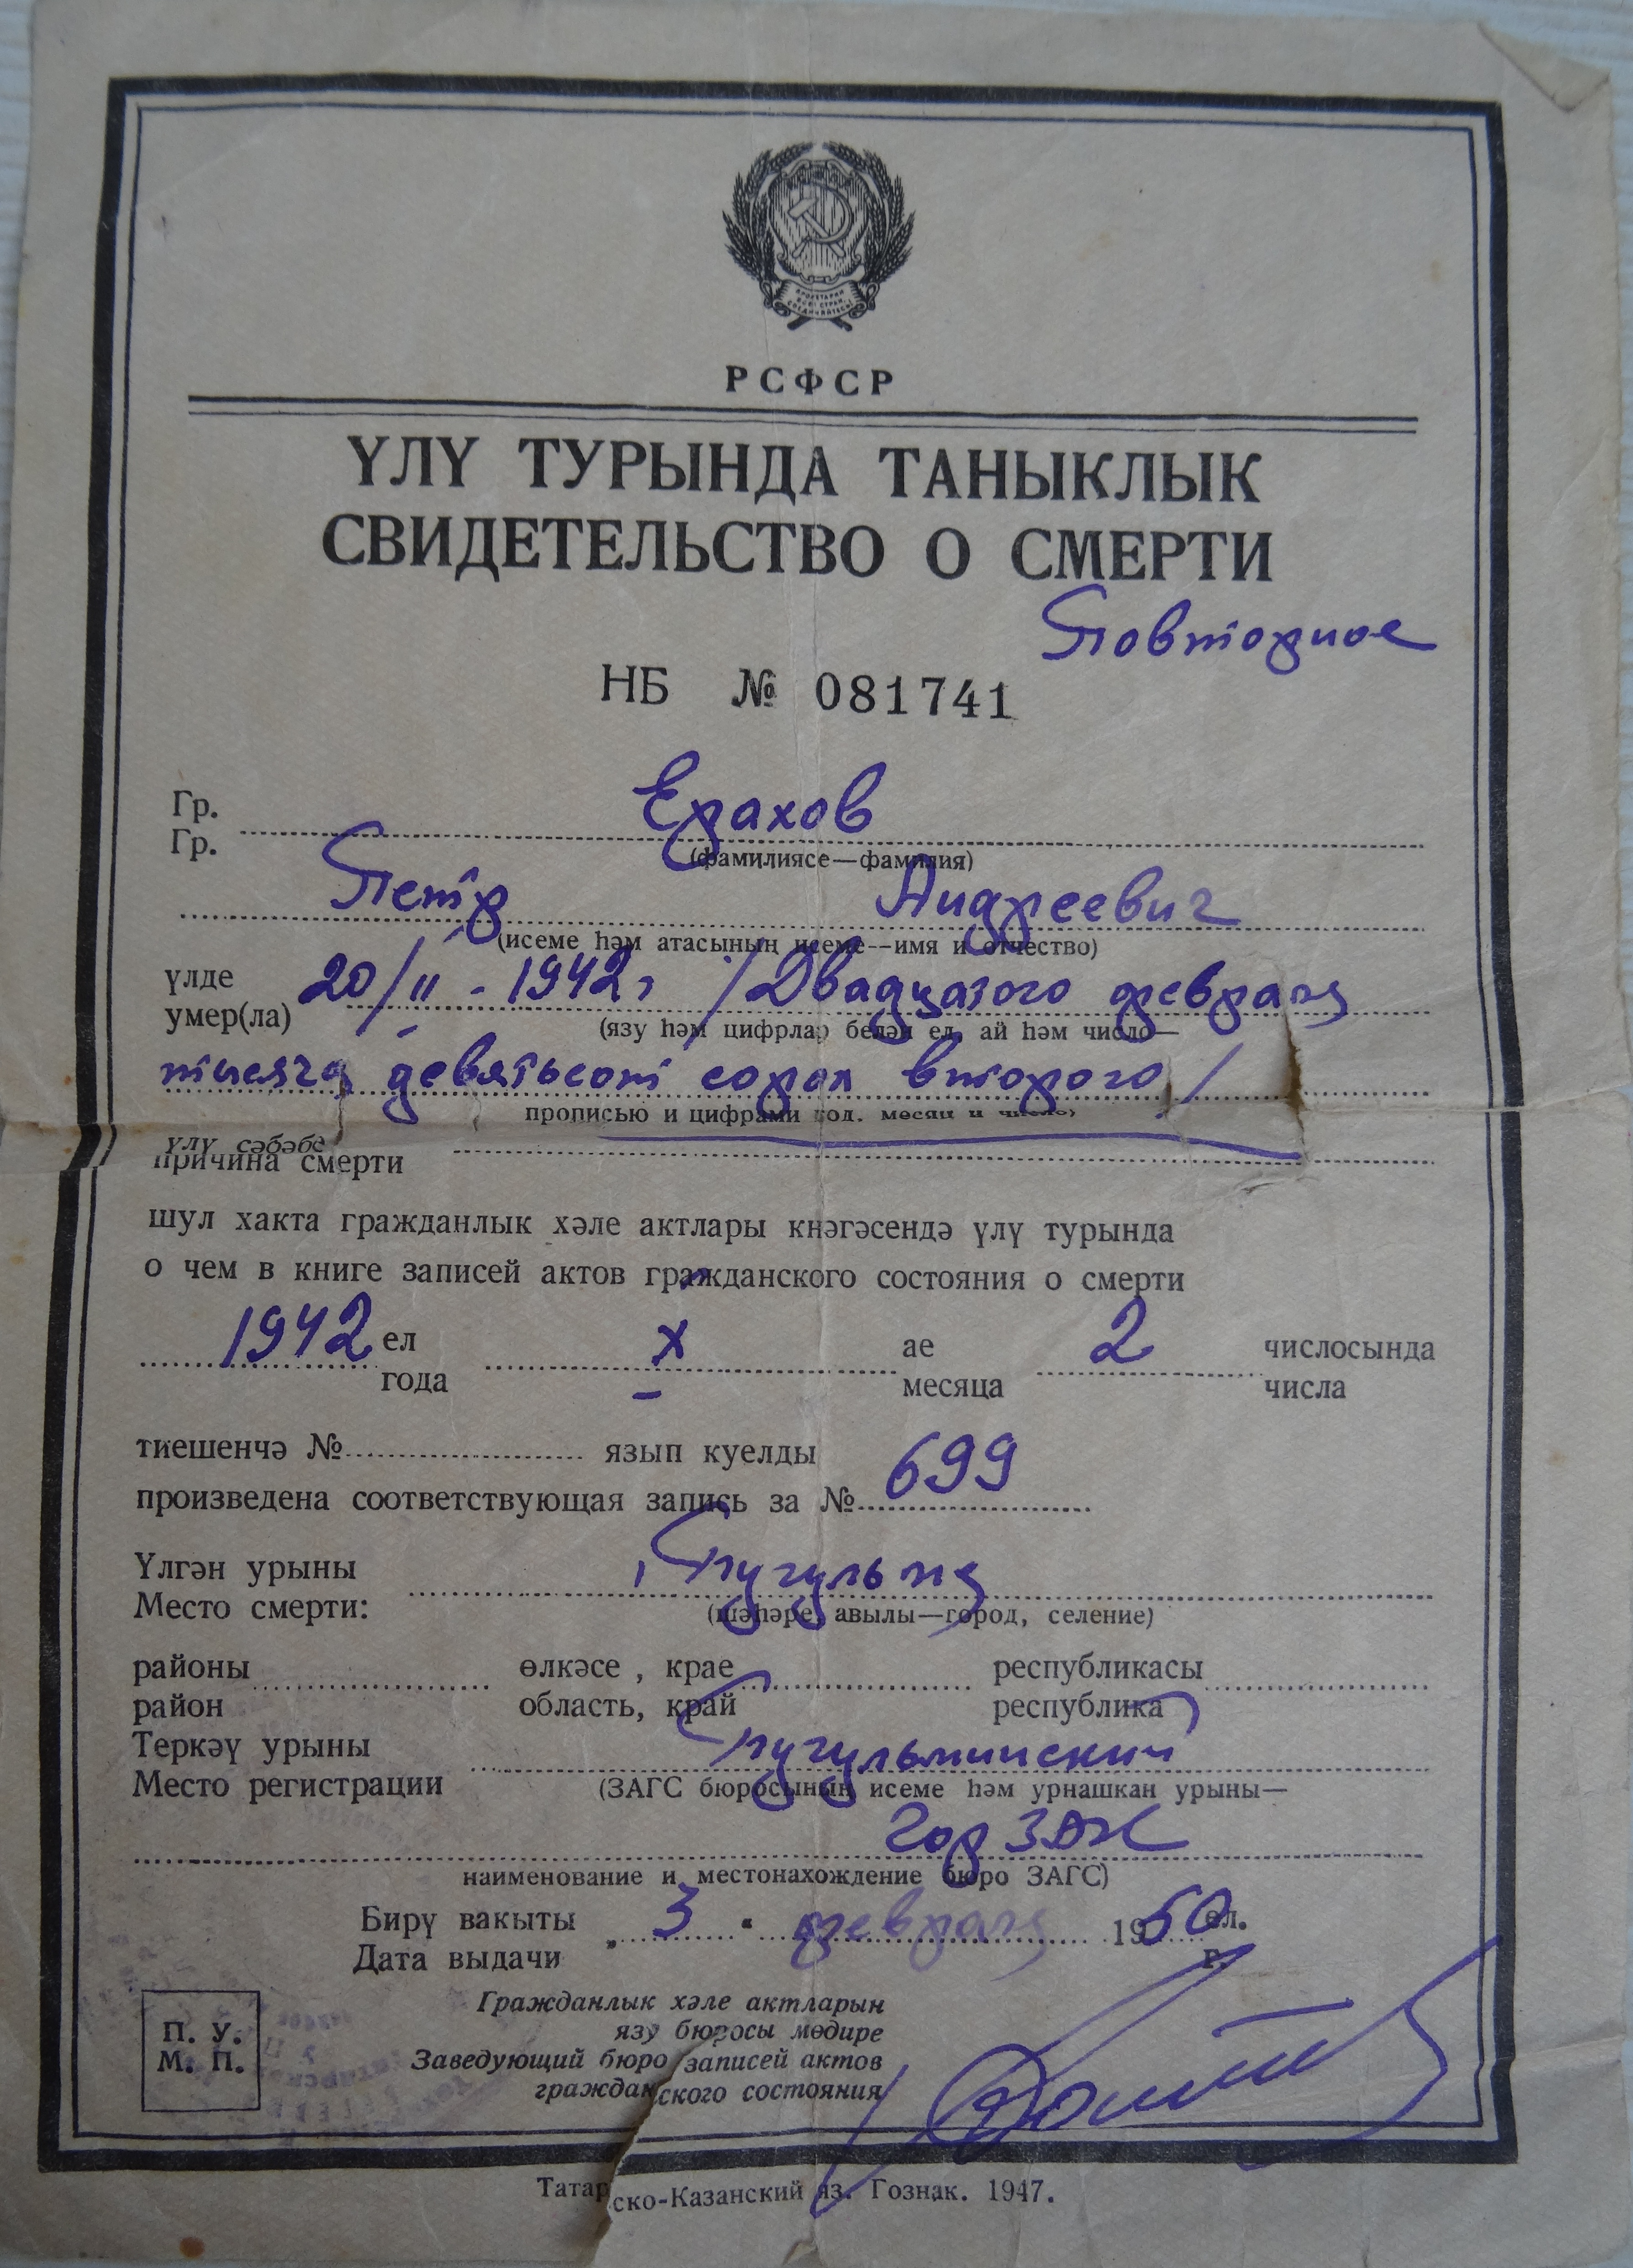 РСФСР
ҮЛҮ ТУРЫНДА ТАНЫКЛЫК
СВИДЕТЕЛЬСТВО О СМЕРТИ
Повторное
НБ № 081741
Гр. Ерахов
Гр.
(фамилиясе—фамилия)
Петр Андреевич
(исеме һәм атасының исеме—имя и отчество)
үлде 20/II - 1942 г /Двадцатого февраля
умер(ла)
(язу һәм цифрлар белән ел, ай һәм число—
тысяча девятьсот сорок второго/
прописью и цифрами год, месяц и число)
үлү сәбәбе
причина смерти
шул хакта гражданлык хәле актлары кнәгәсендә үлү турында
о чем в книге записей актов гражданского состояния о смерти
1942 ел X ае 2 числосында
года месяца числа
тиешенчә № язып куелды
произведена соответствующая запись за № 699
Үлгән урыны г. Бугульма
Место смерти:
(шәһәре, авылы—город, селение)
районы өлкәсе, крае республикасы
район область, край республика
Теркәү урыны Бугульминский
Место регистрации
(ЗАГС бюросының исеме һәм урнашкан урыны—
Гор ЗАГС
наименование и местонахождение бюро ЗАГС)
Бирү вакыты „ 3 " февраля 1950 ел.
Дата выдачи г.
Гражданлык хәле актларын
язу бюросы мөдире
П. У.
М. П.
Заведующий бюро записей актов
гражданского состояния
Татарско-Казанский яз. Гознак. 1947.